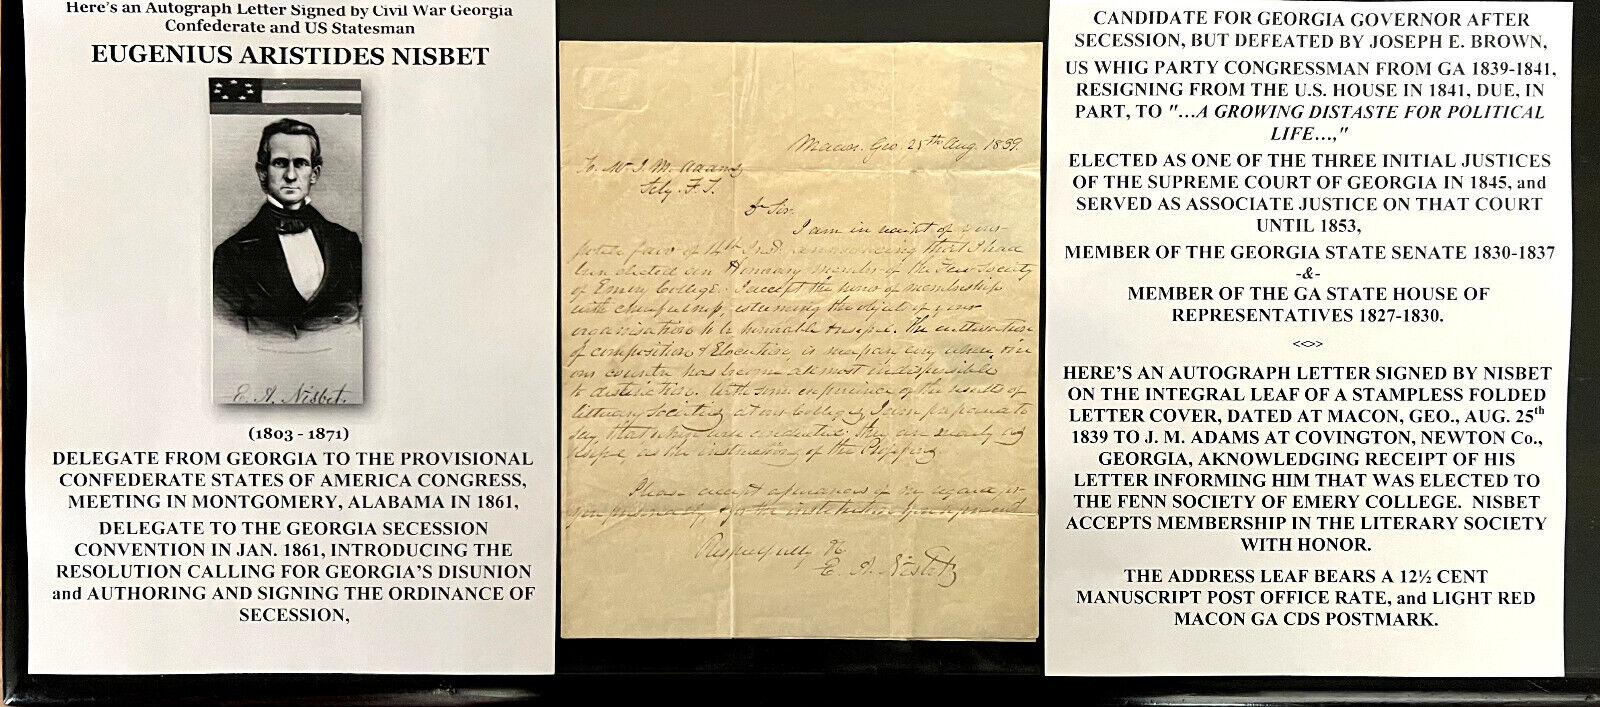 Here's an Autograph Letter Signed by Civil War Georgia
Confederate and US Statesman
EUGENIUS ARISTIDES NISBET
E. A. Nisbet.
(1803 - 1871)
DELEGATE FROM GEORGIA TO THE PROVISIONAL
CONFEDERATE STATES OF AMERICA CONGRESS,
MEETING IN MONTGOMERY, ALABAMA IN 1861,
DELEGATE TO THE GEORGIA SECESSION
CONVENTION IN JAN. 1861, INTRODUCING THE
RESOLUTION CALLING FOR GEORGIA'S DISUNION
and AUTHORING AND SIGNING THE ORDINANCE OF
SECESSION,
Macon. Geo. 25th Aug. 1839.
To Mr J. M. Adams
Secy. F. S.
Dr Sir.
I am in receipt of your
favor of 14th announcing that I had
been elected an Honorary member of the Fenn Society
of Emory College. I accept the honor of membership
with cheerfulness, esteeming the objects of your
organisation to be honorable & useful. The cultivation
of composition & Elocution, is in
our country has become almost indispensible
to distinction. With some experience of the results of
literary societies at our Colleges, I am prepared to
say, that when well conducted, they are nearly as
useful, as the instructions of the
Please accept assurances of my regard for
you personally, & for the institution you represent
Respectfully &c
E. A. Nisbet
CANDIDATE FOR GEORGIA GOVERNOR AFTER
SECESSION, BUT DEFEATED BY JOSEPH E. BROWN,
US WHIG PARTY CONGRESSMAN FROM GA 1839-1841,
RESIGNING FROM THE U.S. HOUSE IN 1841, DUE, IN
PART, TO "...A GROWING DISTASTE FOR POLITICAL
LIFE...,"
ELECTED AS ONE OF THE THREE INITIAL JUSTICES
OF THE SUPREME COURT OF GEORGIA IN 1845, and
SERVED AS ASSOCIATE JUSTICE ON THAT COURT
UNTIL 1853,
MEMBER OF THE GEORGIA STATE SENATE 1830-1837
-&-
MEMBER OF THE GA STATE HOUSE OF
REPRESENTATIVES 1827-1830.
<<>>
HERE'S AN AUTOGRAPH LETTER SIGNED BY NISBET
ON THE INTEGRAL LEAF OF A STAMPLESS FOLDED
LETTER COVER, DATED AT MACON, GEO., AUG. 25th
1839 TO J. M. ADAMS AT COVINGTON, NEWTON Co.,
GEORGIA, AKNOWLEDGING RECEIPT OF HIS
LETTER INFORMING HIM THAT WAS ELECTED TO
THE FENN SOCIETY OF EMERY COLLEGE. NISBET
ACCEPTS MEMBERSHIP IN THE LITERARY SOCIETY
WITH HONOR.
THE ADDRESS LEAF BEARS A 12½ CENT
MANUSCRIPT POST OFFICE RATE, and LIGHT RED
MACON GA CDS POSTMARK.